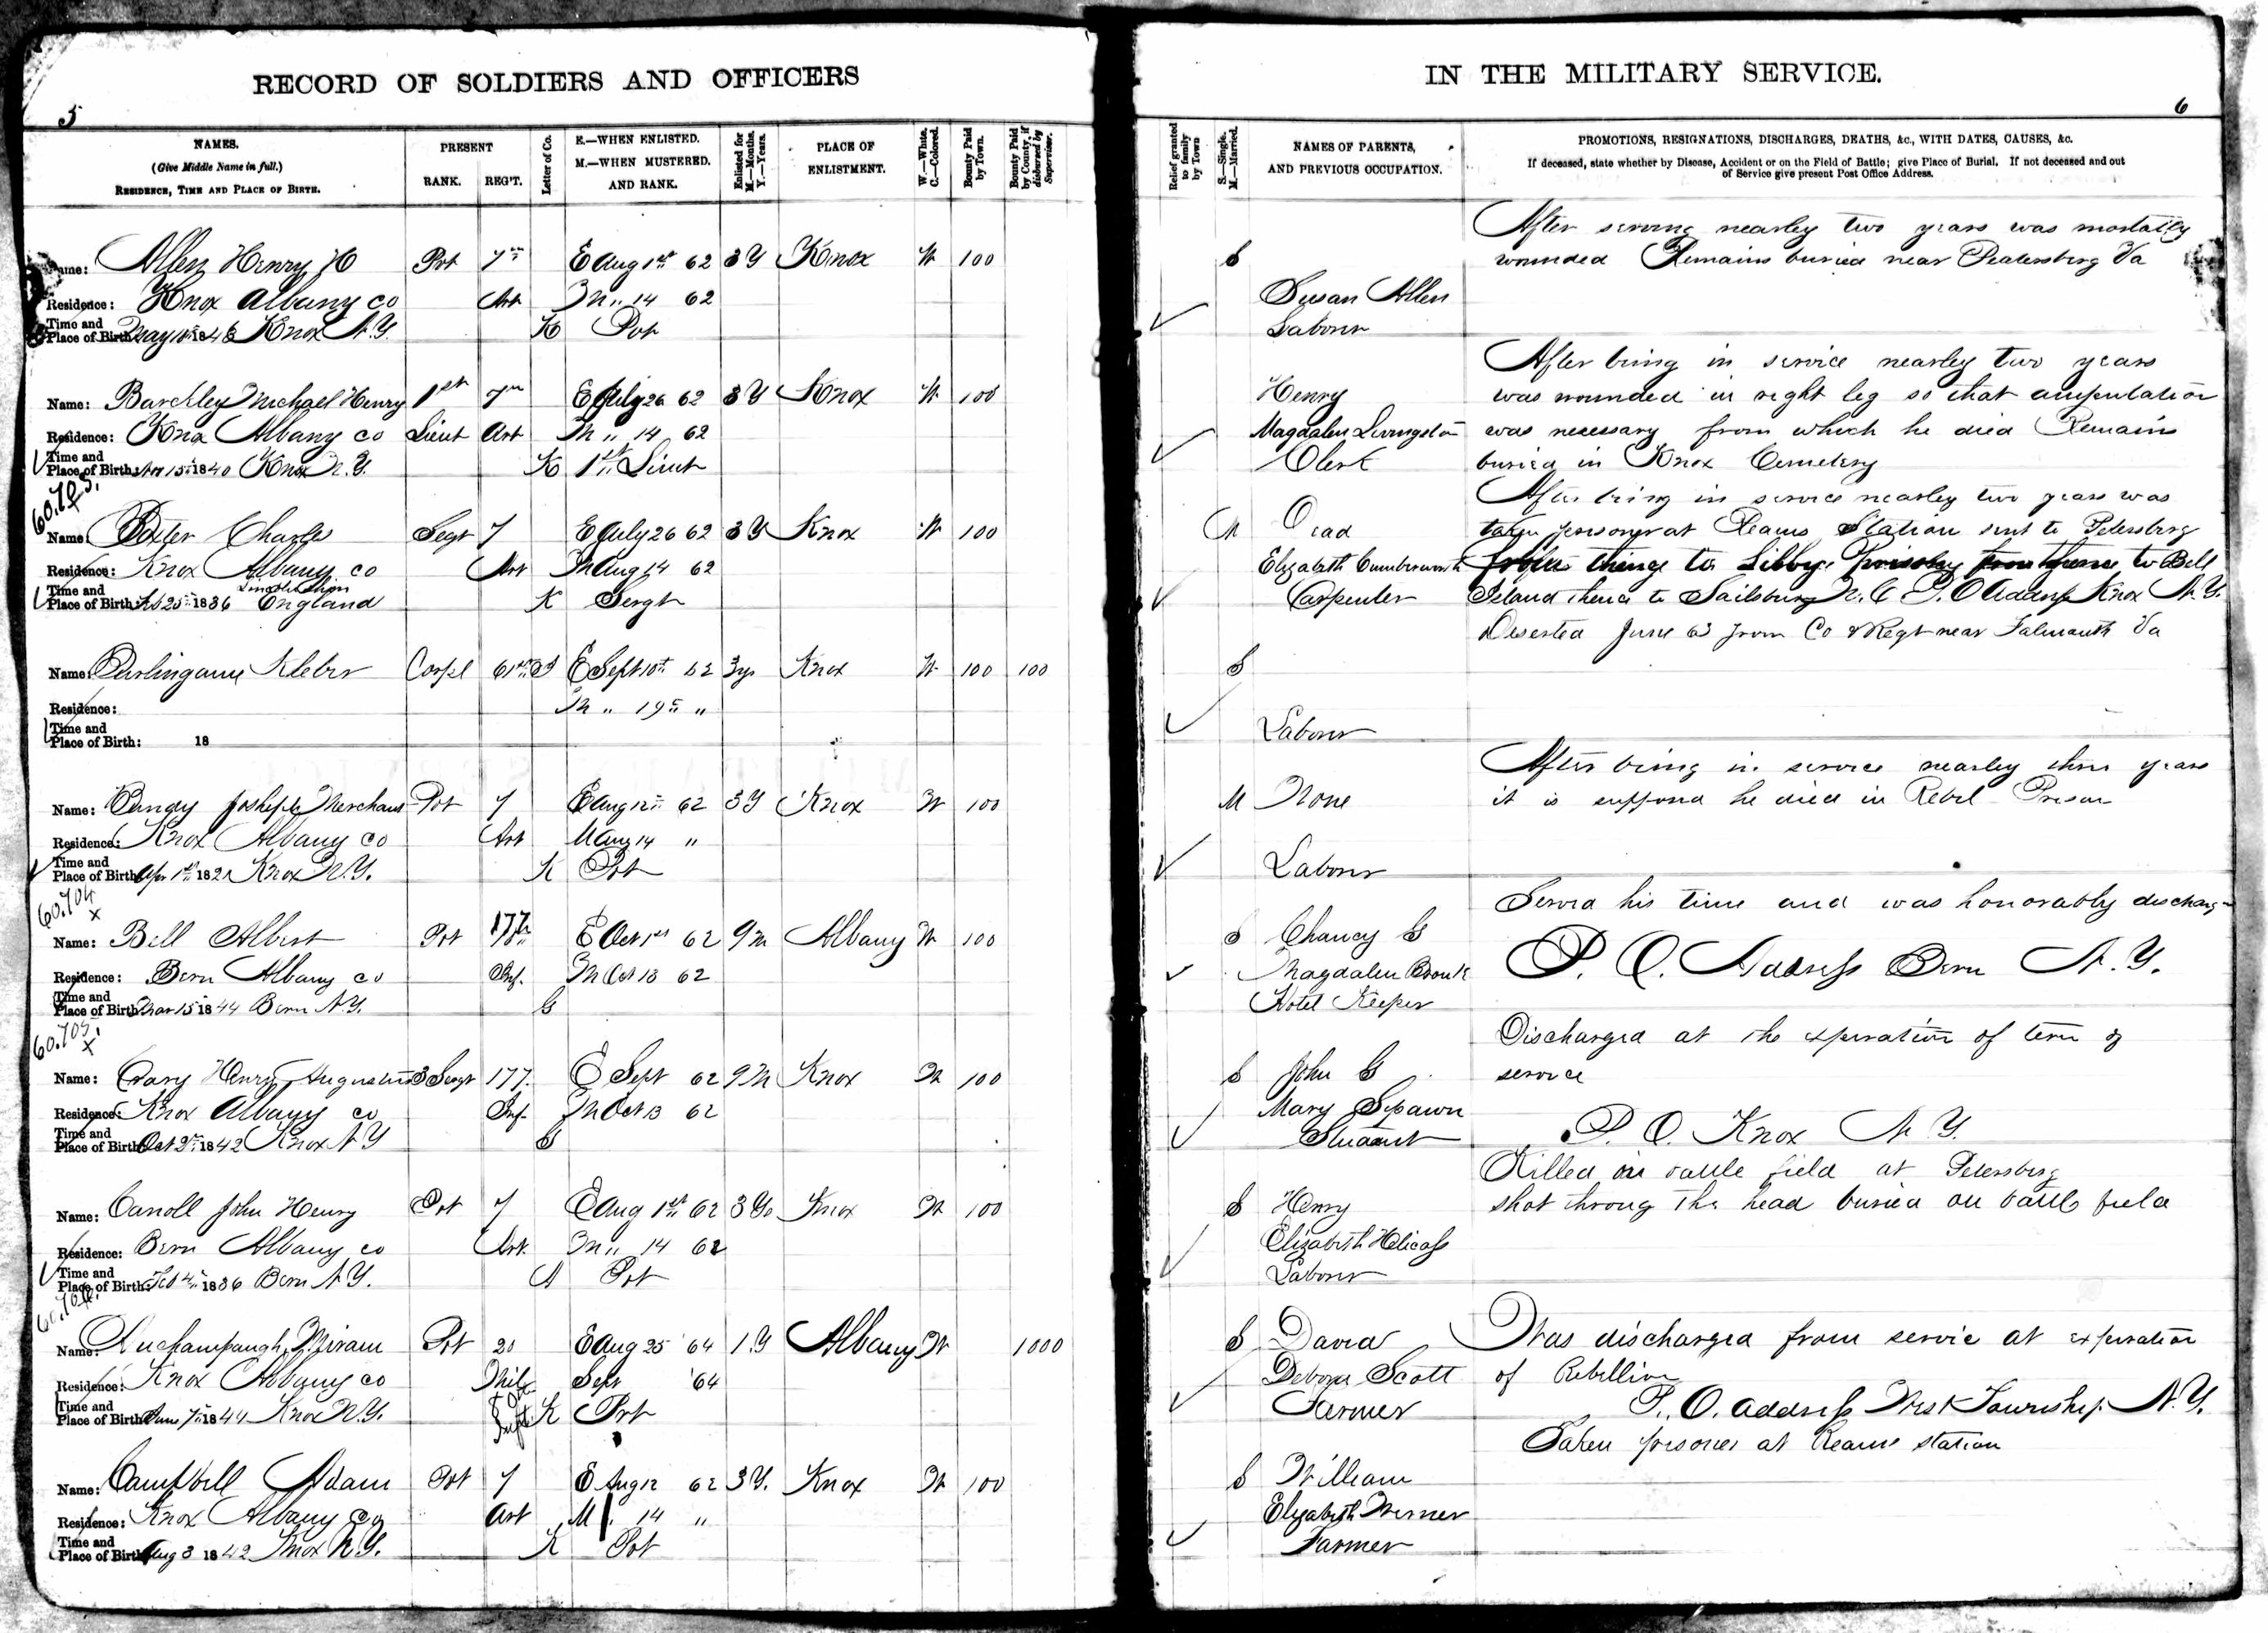 RECORD OF SOLDIERS AND OFFICERS
5
NAMES.
(Give Middle Name in full.)
RESIDENCE, TIME AND PLACE OF BIRTH.
PRESENT
RANK. REG'T.
Letter of Co.
E.—WHEN ENLISTED.
M.—WHEN MUSTERED.
AND RANK.
Enlisted for
M.—Months.
Y.—Years.
PLACE OF
ENLISTMENT.
W.—White.
C.—Colored.
Bounty Paid
by Town.
Bounty Paid
by County, if
disbursed by
Supervisor.
Name: Allen Henry H Pvt 7th E Aug 1st 62 3 Y Knox W 100
Residence: Knox Albany co Art M " 14 62
Time and
Place of Birth: May 1846 Knox N.Y. K Pvt
Name: Barckley Michael Henry 1st 7th E July 26 62 3 Y Knox W 100
Residence: Knox Albany co Lieut Art M " 14 62
Time and
Place of Birth: Nov 15th 1840 Knox N.Y. K 1st Lieut
60.703.
Name: Charles Sergt 7 E July 26 62 3 Y Knox W 100
Residence: Knox Albany co Art M Aug 14 62
Time and
Place of Birth: Feb 25th 1836 England K Sergt
Name: Burlingame Kleber Corpl 61st E Sept 10th 62 3 ys Knox W 100 100
Residence: M " 19th "
Time and
Place of Birth: 18
Name: Bundy Josheph Merchant Pvt 7 E Aug 12th 62 3 Y Knox W 100
Residence: Knox Albany co Art M Aug 14 "
Time and
Place of Birth: Apr 1st 182 Knox N.Y. K Pvt
60.704
x
Name: Bell Albert Pvt 177th E Oct 1st 62 9 M Albany W 100
Residence: Bern Albany co Inf. M Oct 13 62
Time and
Place of Birth: Mar 15 1844 Bern N.Y. G
60.705.
x
Name: Crary Henry Augustus 3 Sergt 177. E Sept 62 9 M Knox W 100
Residence: Knox Albany co Inf. M Oct 13 62
Time and
Place of Birth: Oct 2nd 1842 Knox N Y G
Name: Carroll John Henry Pvt 7 E Aug 1st 62 3 Ys Knox W 100
Residence: Bern Albany co Art. M " 14 62
Time and
Place of Birth: Feb 4th 1836 Bern N.Y. Pvt
Name: Hiram Pvt 20 E Aug 25 '64 1.Y Albany W 1000
Residence: Knox Albany co Mil Sept '64
Time and
Place of Birth: June 7th 1844 Knox N.Y. K Pvt
Name: Campbell Adam Pvt 7 E Aug 12 62 3 Y. Knox W 100
Residence: Knox Albany Co Art M " 14 "
Time and
Place of Birth: Aug 3 1842 Knox N.Y. K Pvt
IN THE MILITARY SERVICE.
6
Relief granted
to family
by Town
S.—Single.
M.—Married.
NAMES OF PARENTS,
AND PREVIOUS OCCUPATION.
PROMOTIONS, RESIGNATIONS, DISCHARGES, DEATHS, &c., WITH DATES, CAUSES, &c.
If deceased, state whether by Disease, Accident or on the Field of Battle; give Place of Burial. If not deceased and out
of Service give present Post Office Address.
After serving nearley two years was mortally
S wounded Remains buried near Peatersberg Va
Susan Allen
Laborer
After being in service nearley two years
Henry was wounded in right leg so that amputation
Magdalen Livingston was necessary from which he died Remains
Clerk buried in Knox Cemetery
After being in service nearley two years was
M Dead taken prisoner at Reams Station sent to Petersberg
Elizabeth from thence to Libby Prison from thence to Bell
Carpenter Island thence to Sailsbury N.C P.O Address Knox N.Y.
Deserted June 63 from Co & Regt near Falmouth Va
S
Laborer
After being in service nearley three years
M None it is suppond he died in Rebel Prison
Laborer
Served his time and was honorably discharg
S Chancy G
Magdalen Bronk P. O. Address Bern N.Y.
Hotel Keeper
Discharged at the expiration of term of
S John G service
Mary Spawn
Student P. O. Knox N Y.
Killed on battle field at Petersberg
S Henry shot throug the head buried on battle field
Elizabeth
Laborer
S David Was discharged from servic at expiration
Debora Scott of Rebellion
Farmer P. O. address West Township. N.Y.
Taken prisoner at Reams station
S William
Elizabeth Werner
Farmer